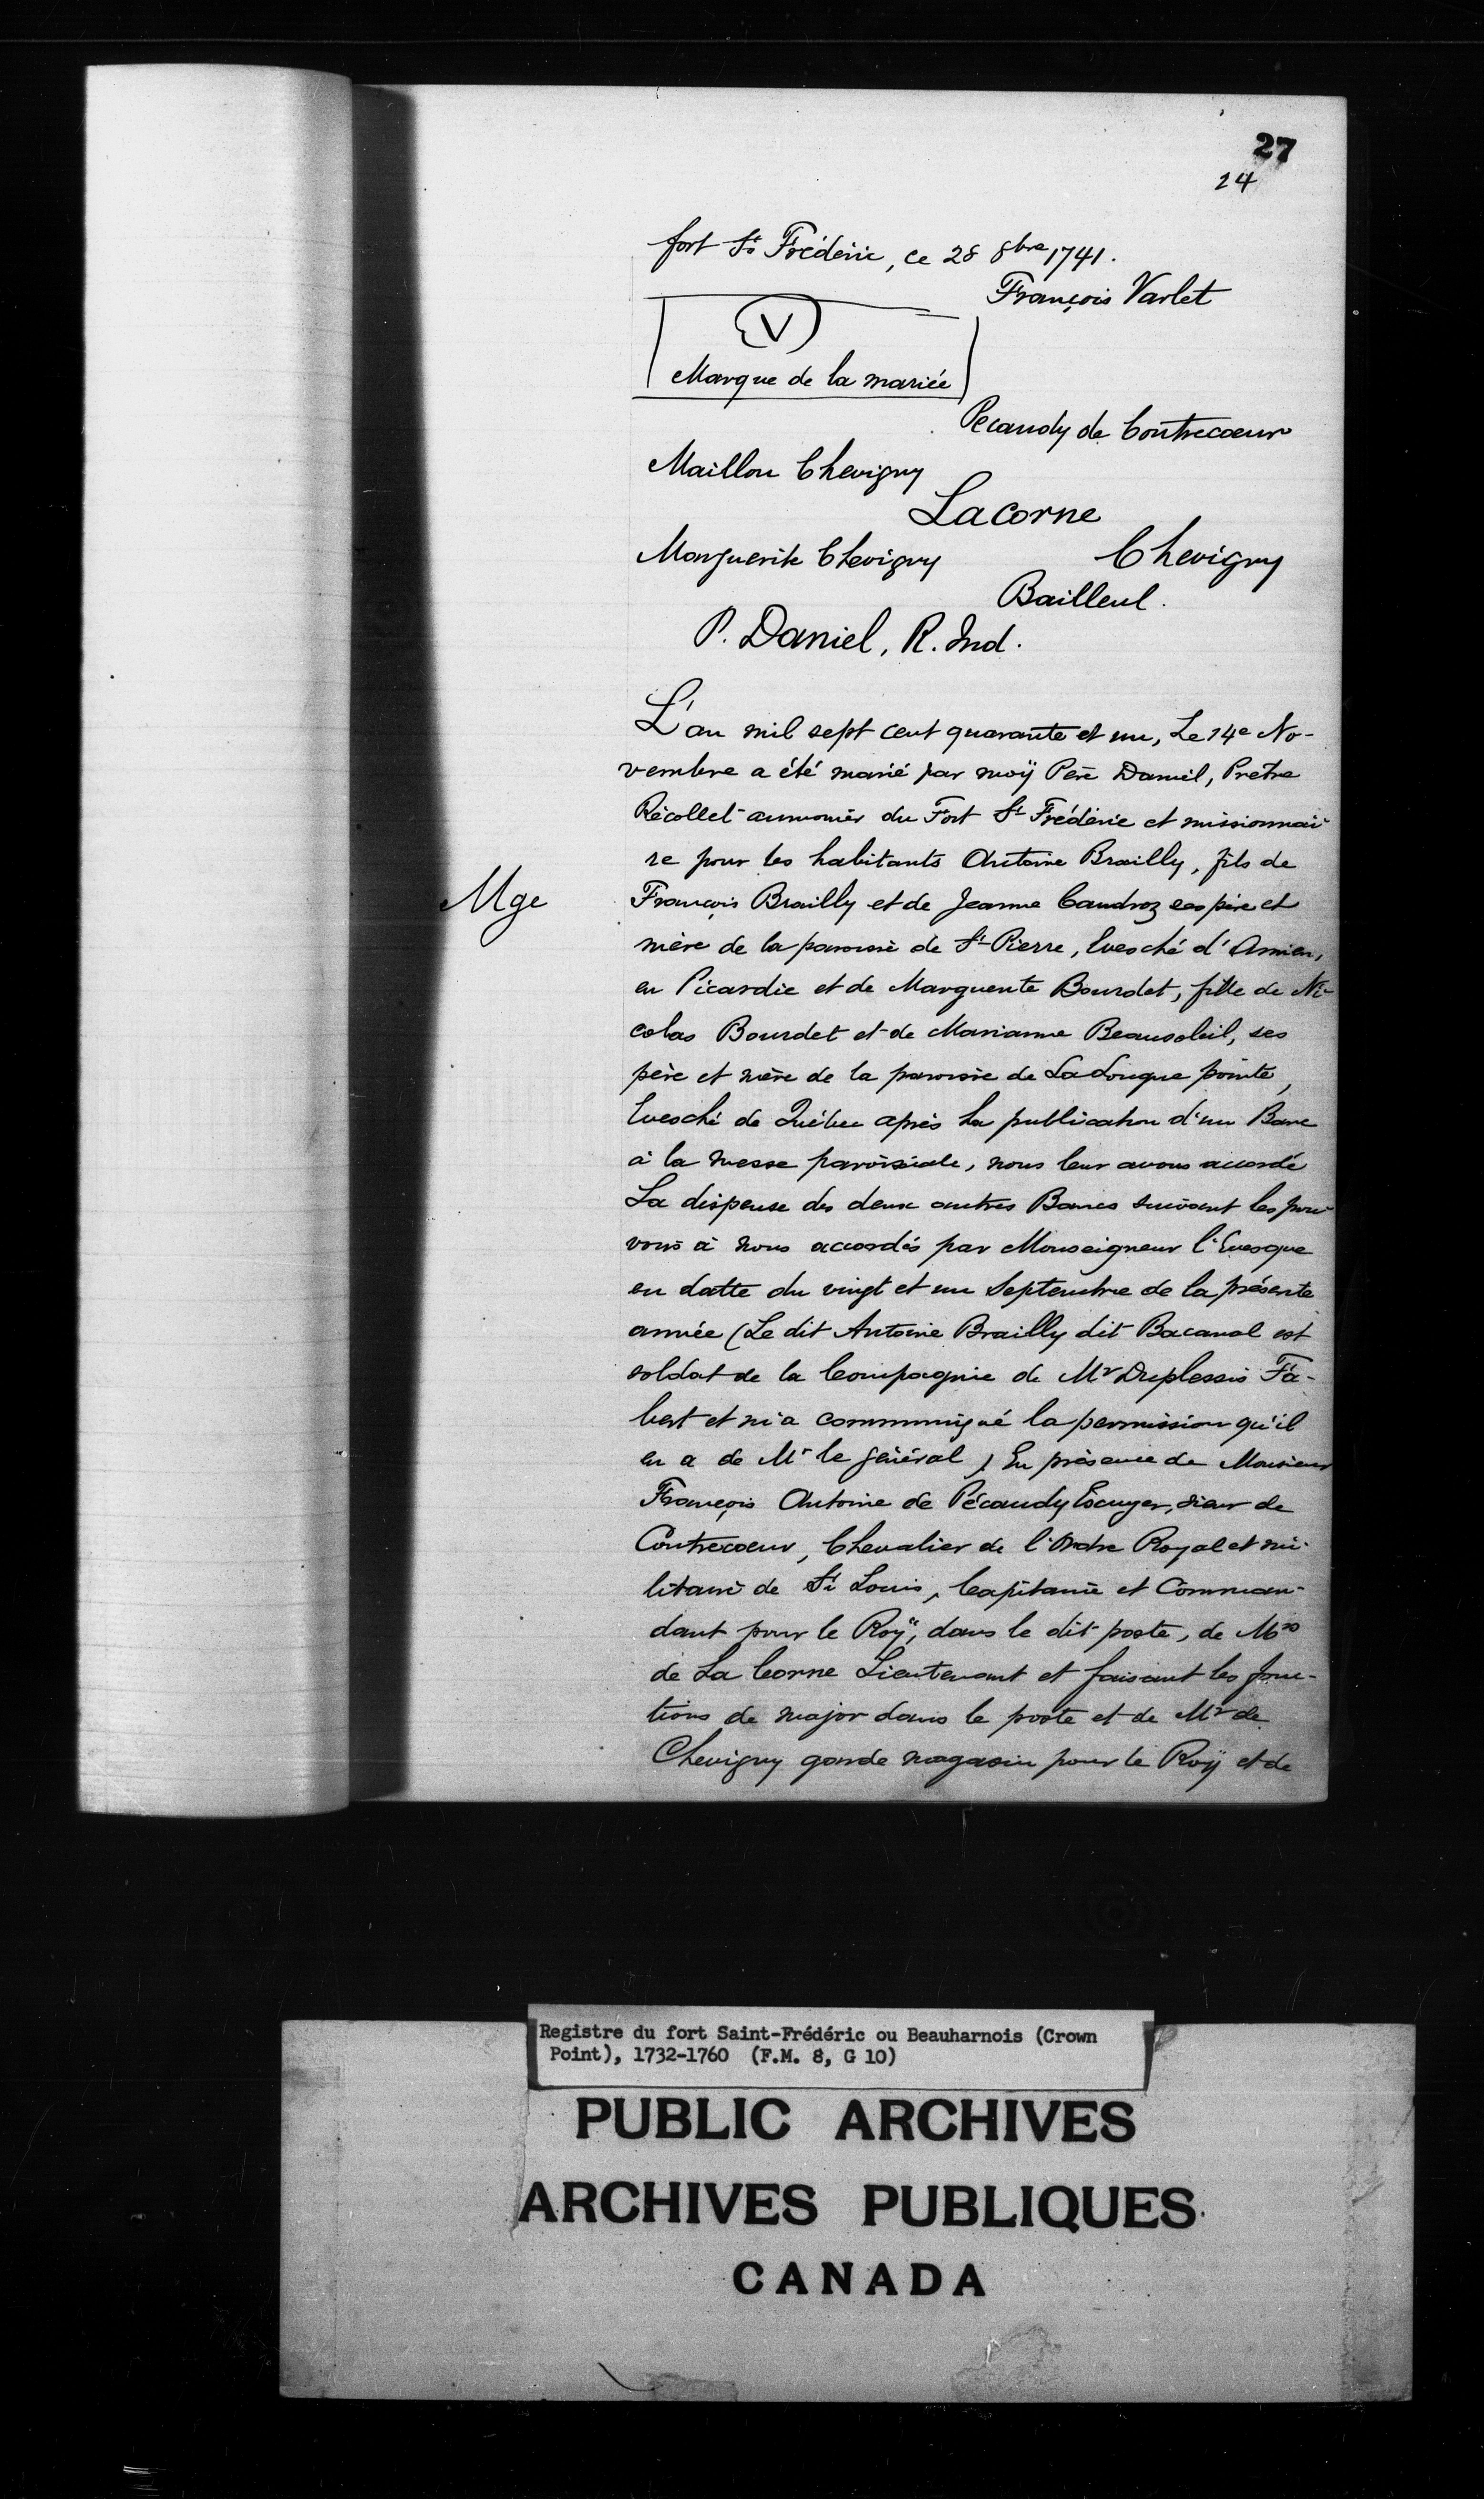 27
24
fort St Frédéric, ce 28 8bre 1741.
François Varlet
V
Marque de la mariée
Pecaudy de Contrecoeur
Maillou Chevigny
Lacorne
Marguerite Chevigny
Chevigny
Bailleul.
P. Daniel, R. Ind.
L'an mil sept cent quarante et un, Le 14e No-
vembre a été marié par moÿ Père Daniel, Prêtre
Récollet aumonier du Fort St Frédéric et missionnai
re pour les habitants Antoine Brailly, fils de
Mge
François Brailly et de Jeanne Caudroz ses père et
mère de la paroisse de St Pierre, Evesché d'Amien,
en Picardie et de Marguerite Bourdet, fille de Ni-
colas Bourdet et de Marianne Beausoleil, ses
père et mère de la paroisse de La Longue pointe,
Evesché de Québec après la publication d'un Banc
à la messe paroissiale, nous leur avons accordé
La dispense des deux autres Bancs suivant les pou-
voirs à nous accordés par Monseigneur l'Evesque
en datte du vingt et un Septembre de la présente
année (Le dit Antoine Brailly dit Bacanal est
soldat de la Compagnie de Mr Duplessis Fa-
bert et m'a communiqué la permission qu'il
en a de Mr le général) En présence de Monsieur
François Antoine de Pécaudy Escuyer, sieur de
Contrecoeur, Chevalier de l'Ordre Royal et mi-
litaire de St Louis, Capitaine et Comman-
dant pour le Roÿ, dans le dit poste, de Mrs
de La Corne Lieutenant et faisant les fonc-
tions de major dans le poste et de Mr de
Chevigny garde magasin pour le Roÿ et de
Registre du fort Saint-Frédéric ou Beauharnois (Crown
Point), 1732-1760 (F.M. 8, G 10)
PUBLIC ARCHIVES
ARCHIVES PUBLIQUES
CANADA